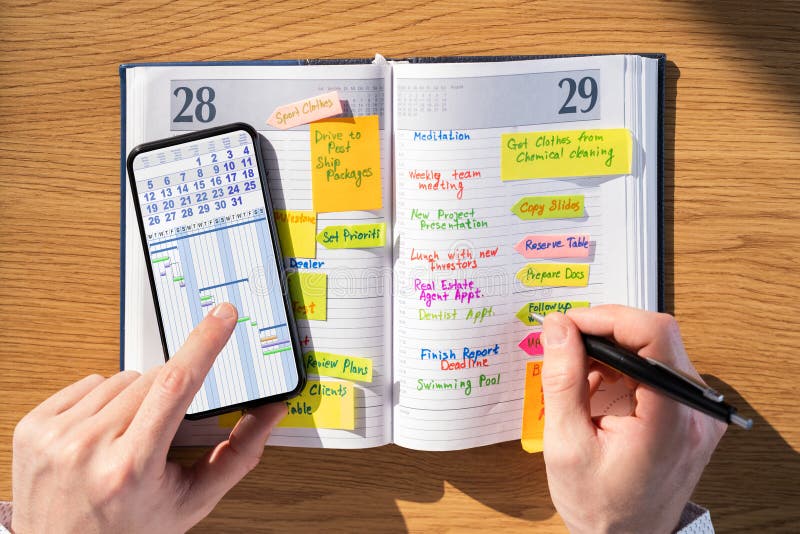 28
Sport Clothes
Drive to
Post
Ship
Packages
Milestone
Set Prioriti
Dealer
Review Plans
Clients
Table
1 2 3 4
5 6 7 8 9 10 11
12 13 14 15 16 17 18
19 20 21 22 23 24 25
26 27 28 29 30 31
M T W T F S S M T W T F S S
29
Meditation
Weekly team
meeting
New Project
Presentation
Lunch with new
investors
Real Estate
Agent Appt.
Dentist Appt.
Finish Report
Deadline
Swimming Pool
Get Clothes from
Chemical cleaning
Copy Slides
Reserve Table
Prepare Docs
Follow up